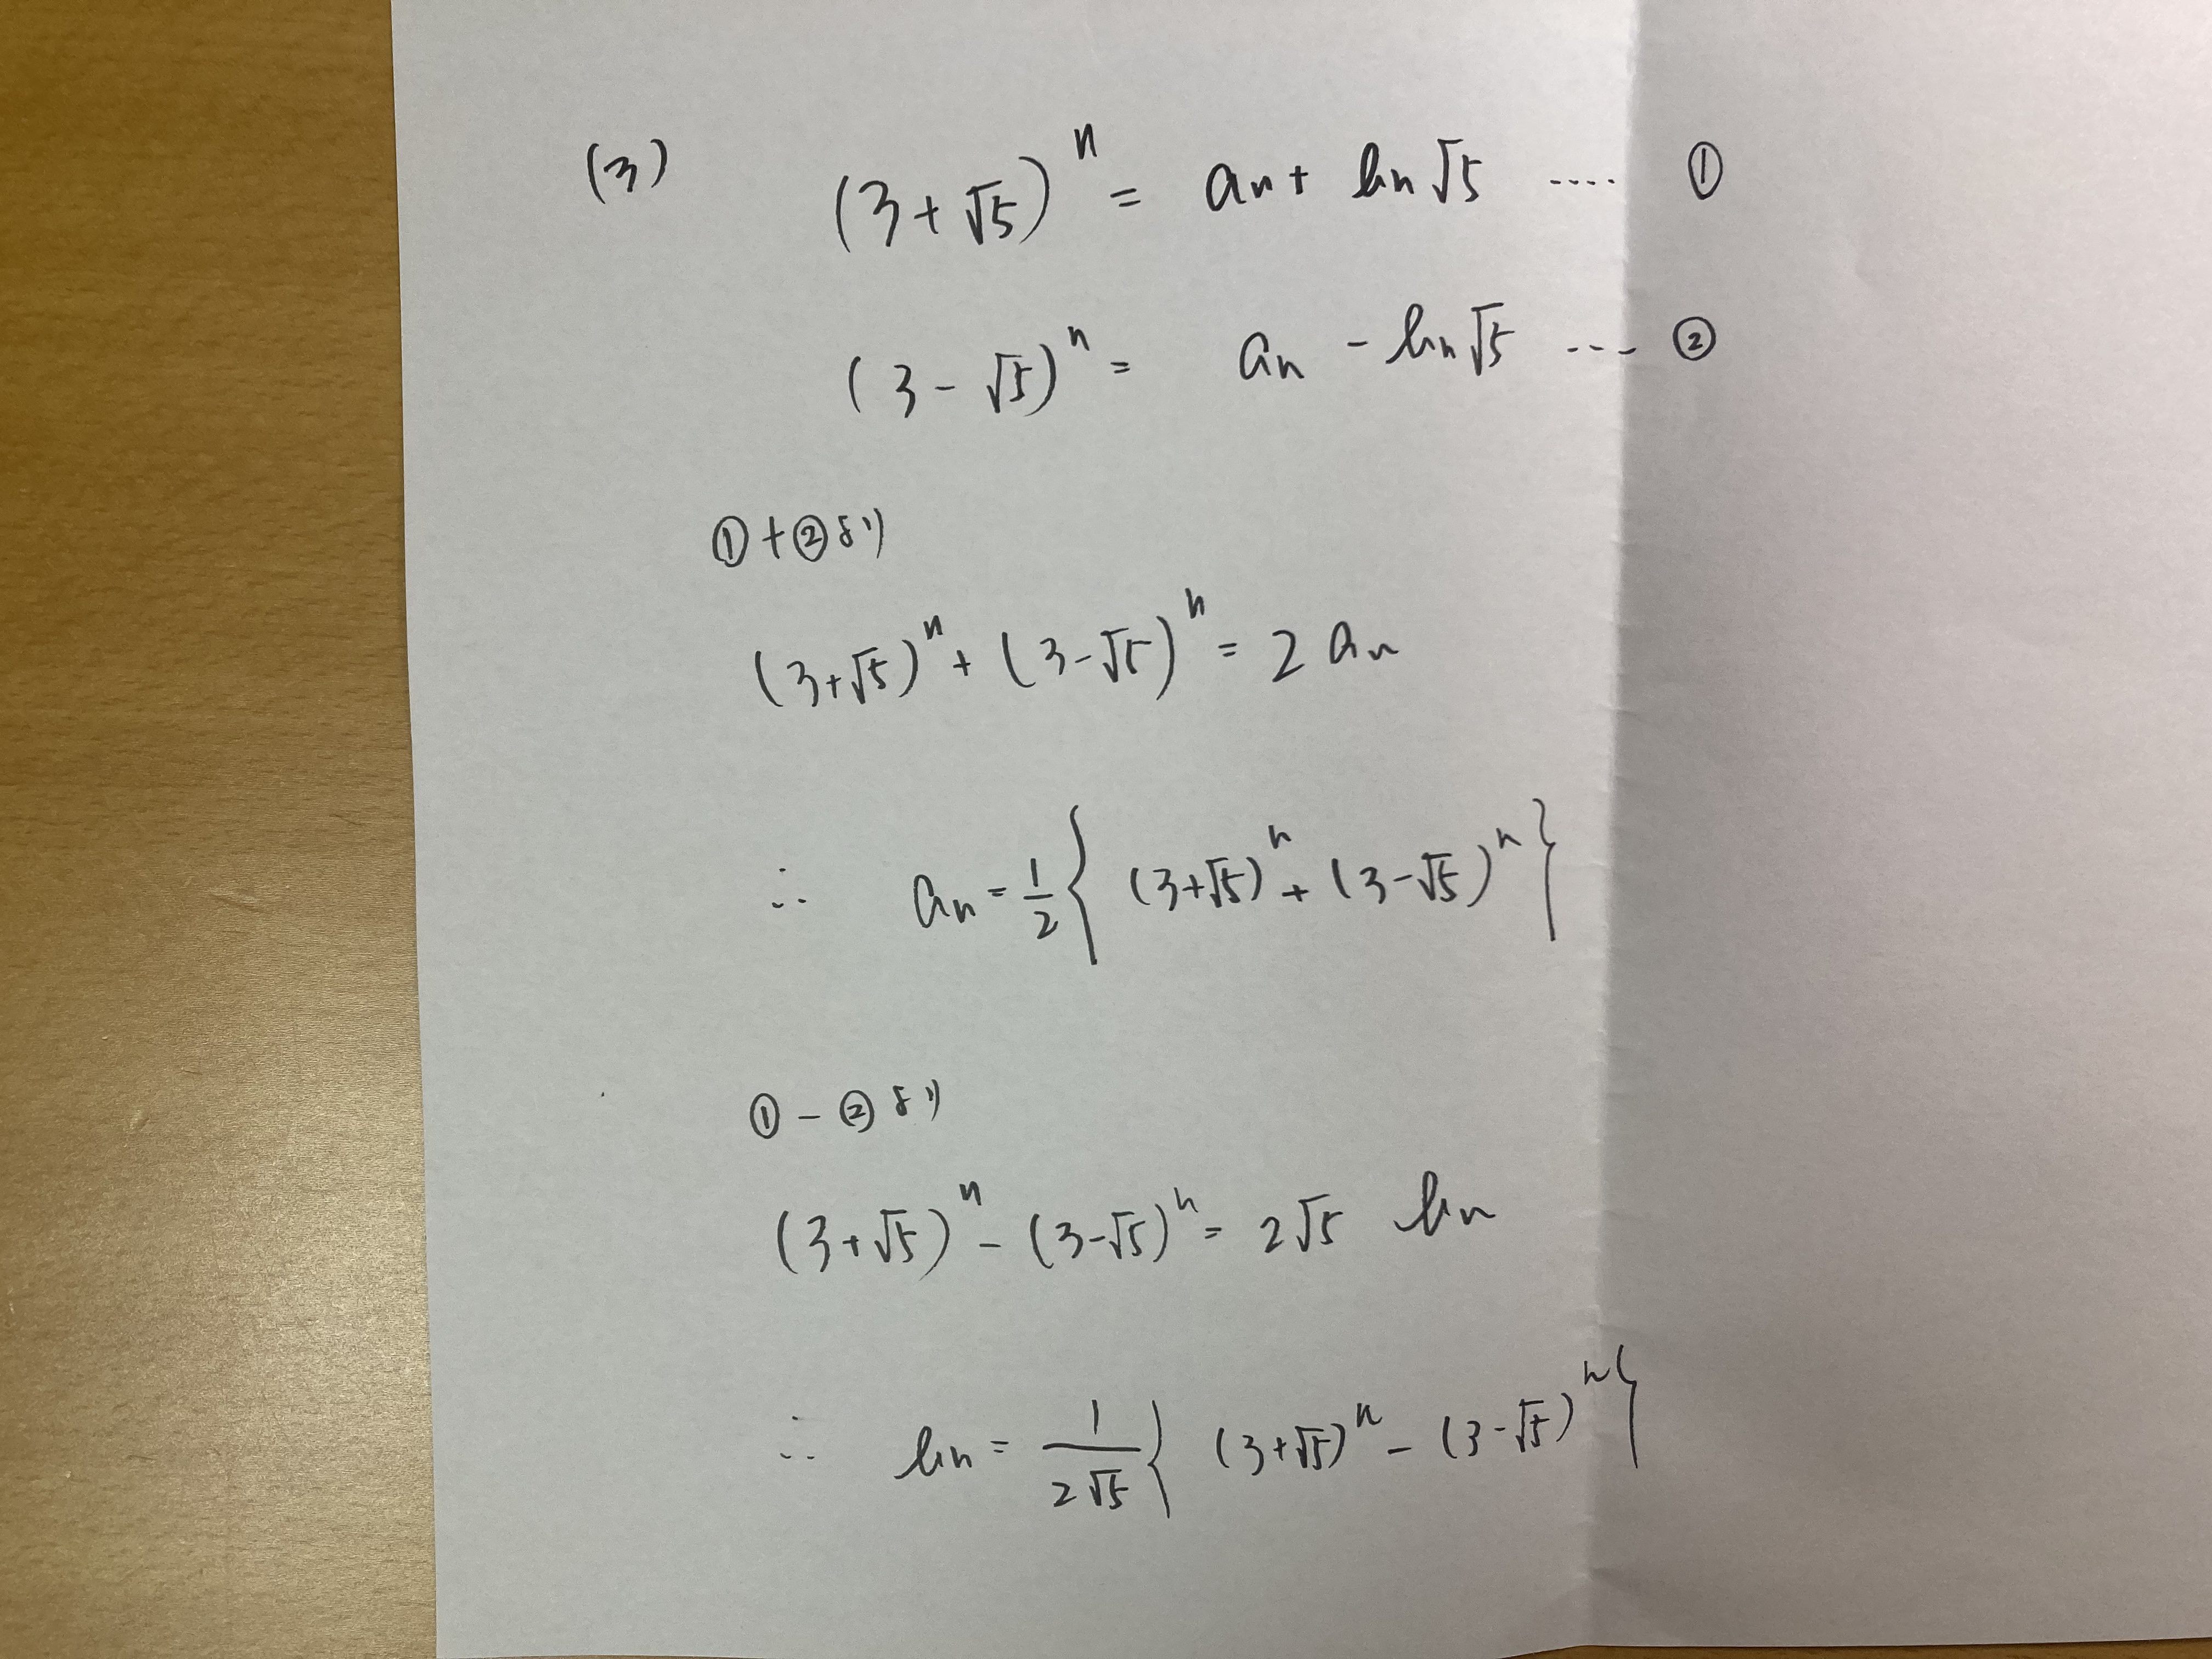 (3) (3+√5)^n = an + bn√5 ‥‥ ①
(3-√5)^n = an - bn√5 ‥‥ ②
①+②より
(3+√5)^n + (3-√5)^n = 2an
∴ an = 1/2 { (3+√5)^n + (3-√5)^n }
①-②より
(3+√5)^n - (3-√5)^n = 2√5 bn
∴ bn = 1/2√5 { (3+√5)^n - (3-√5)^n }